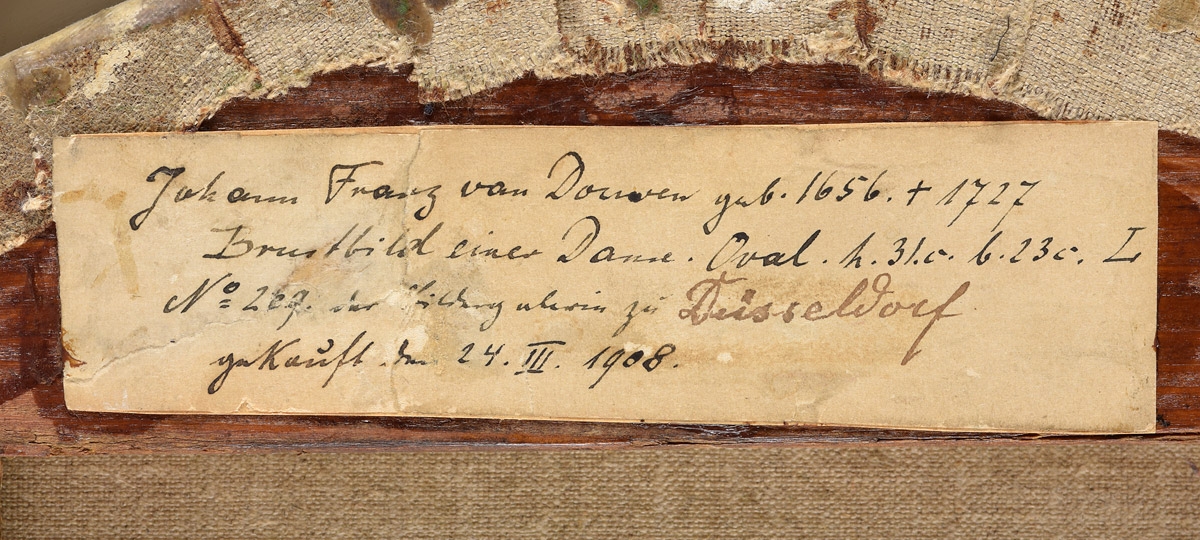 Johann Franz van Douwen geb. 1656. + 1727
Brustbild einer Dame. Oval. h. 31.c. b. 23c. L
Nº 2 der zu Düsseldorf
gekauft den 24. III. 1908.